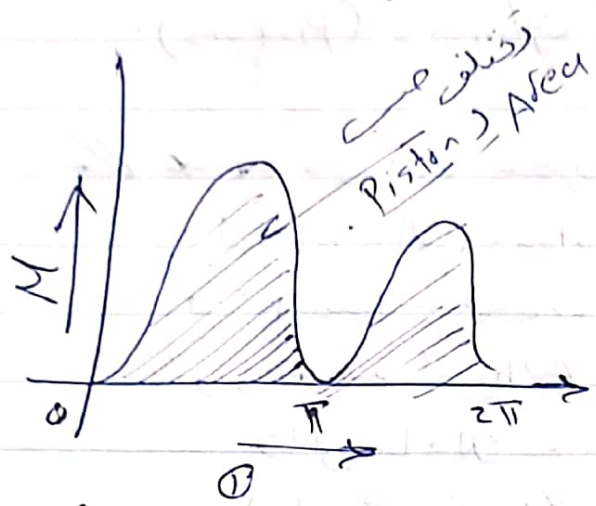 تختلف حسب
Piston Area
M
0 π 2π
①